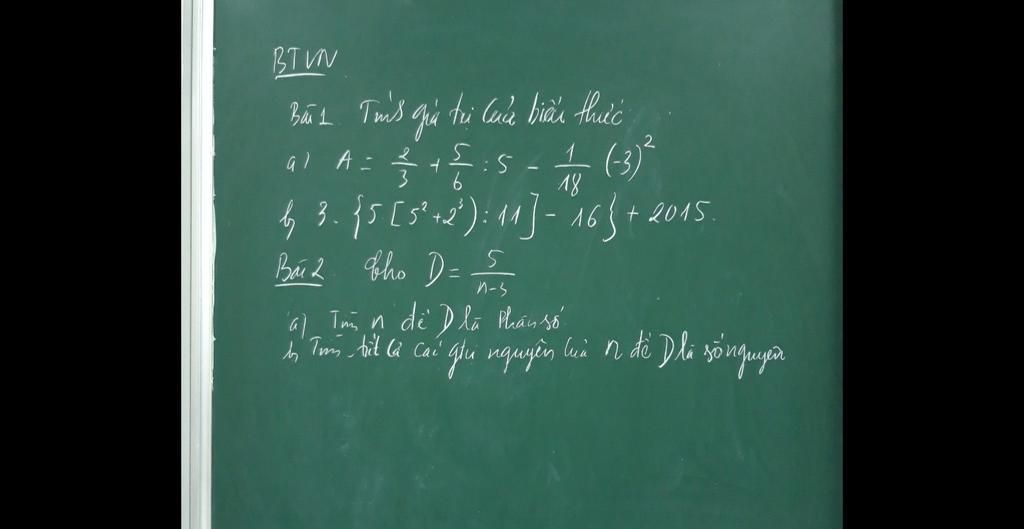 BTVN
Bài 1 Tính giá trị của biểu thức
a) A = 2/3 + 5/6 : 5 - 1/18 (-3)²
b) 3. {5 [5² + 2³) : 11] - 16} + 2015.
Bài 2 Cho D = 5/n-3
a) Tìm n để D là phân số
b) Tìm tất cả các gtrị nguyên của n để D là số nguyên